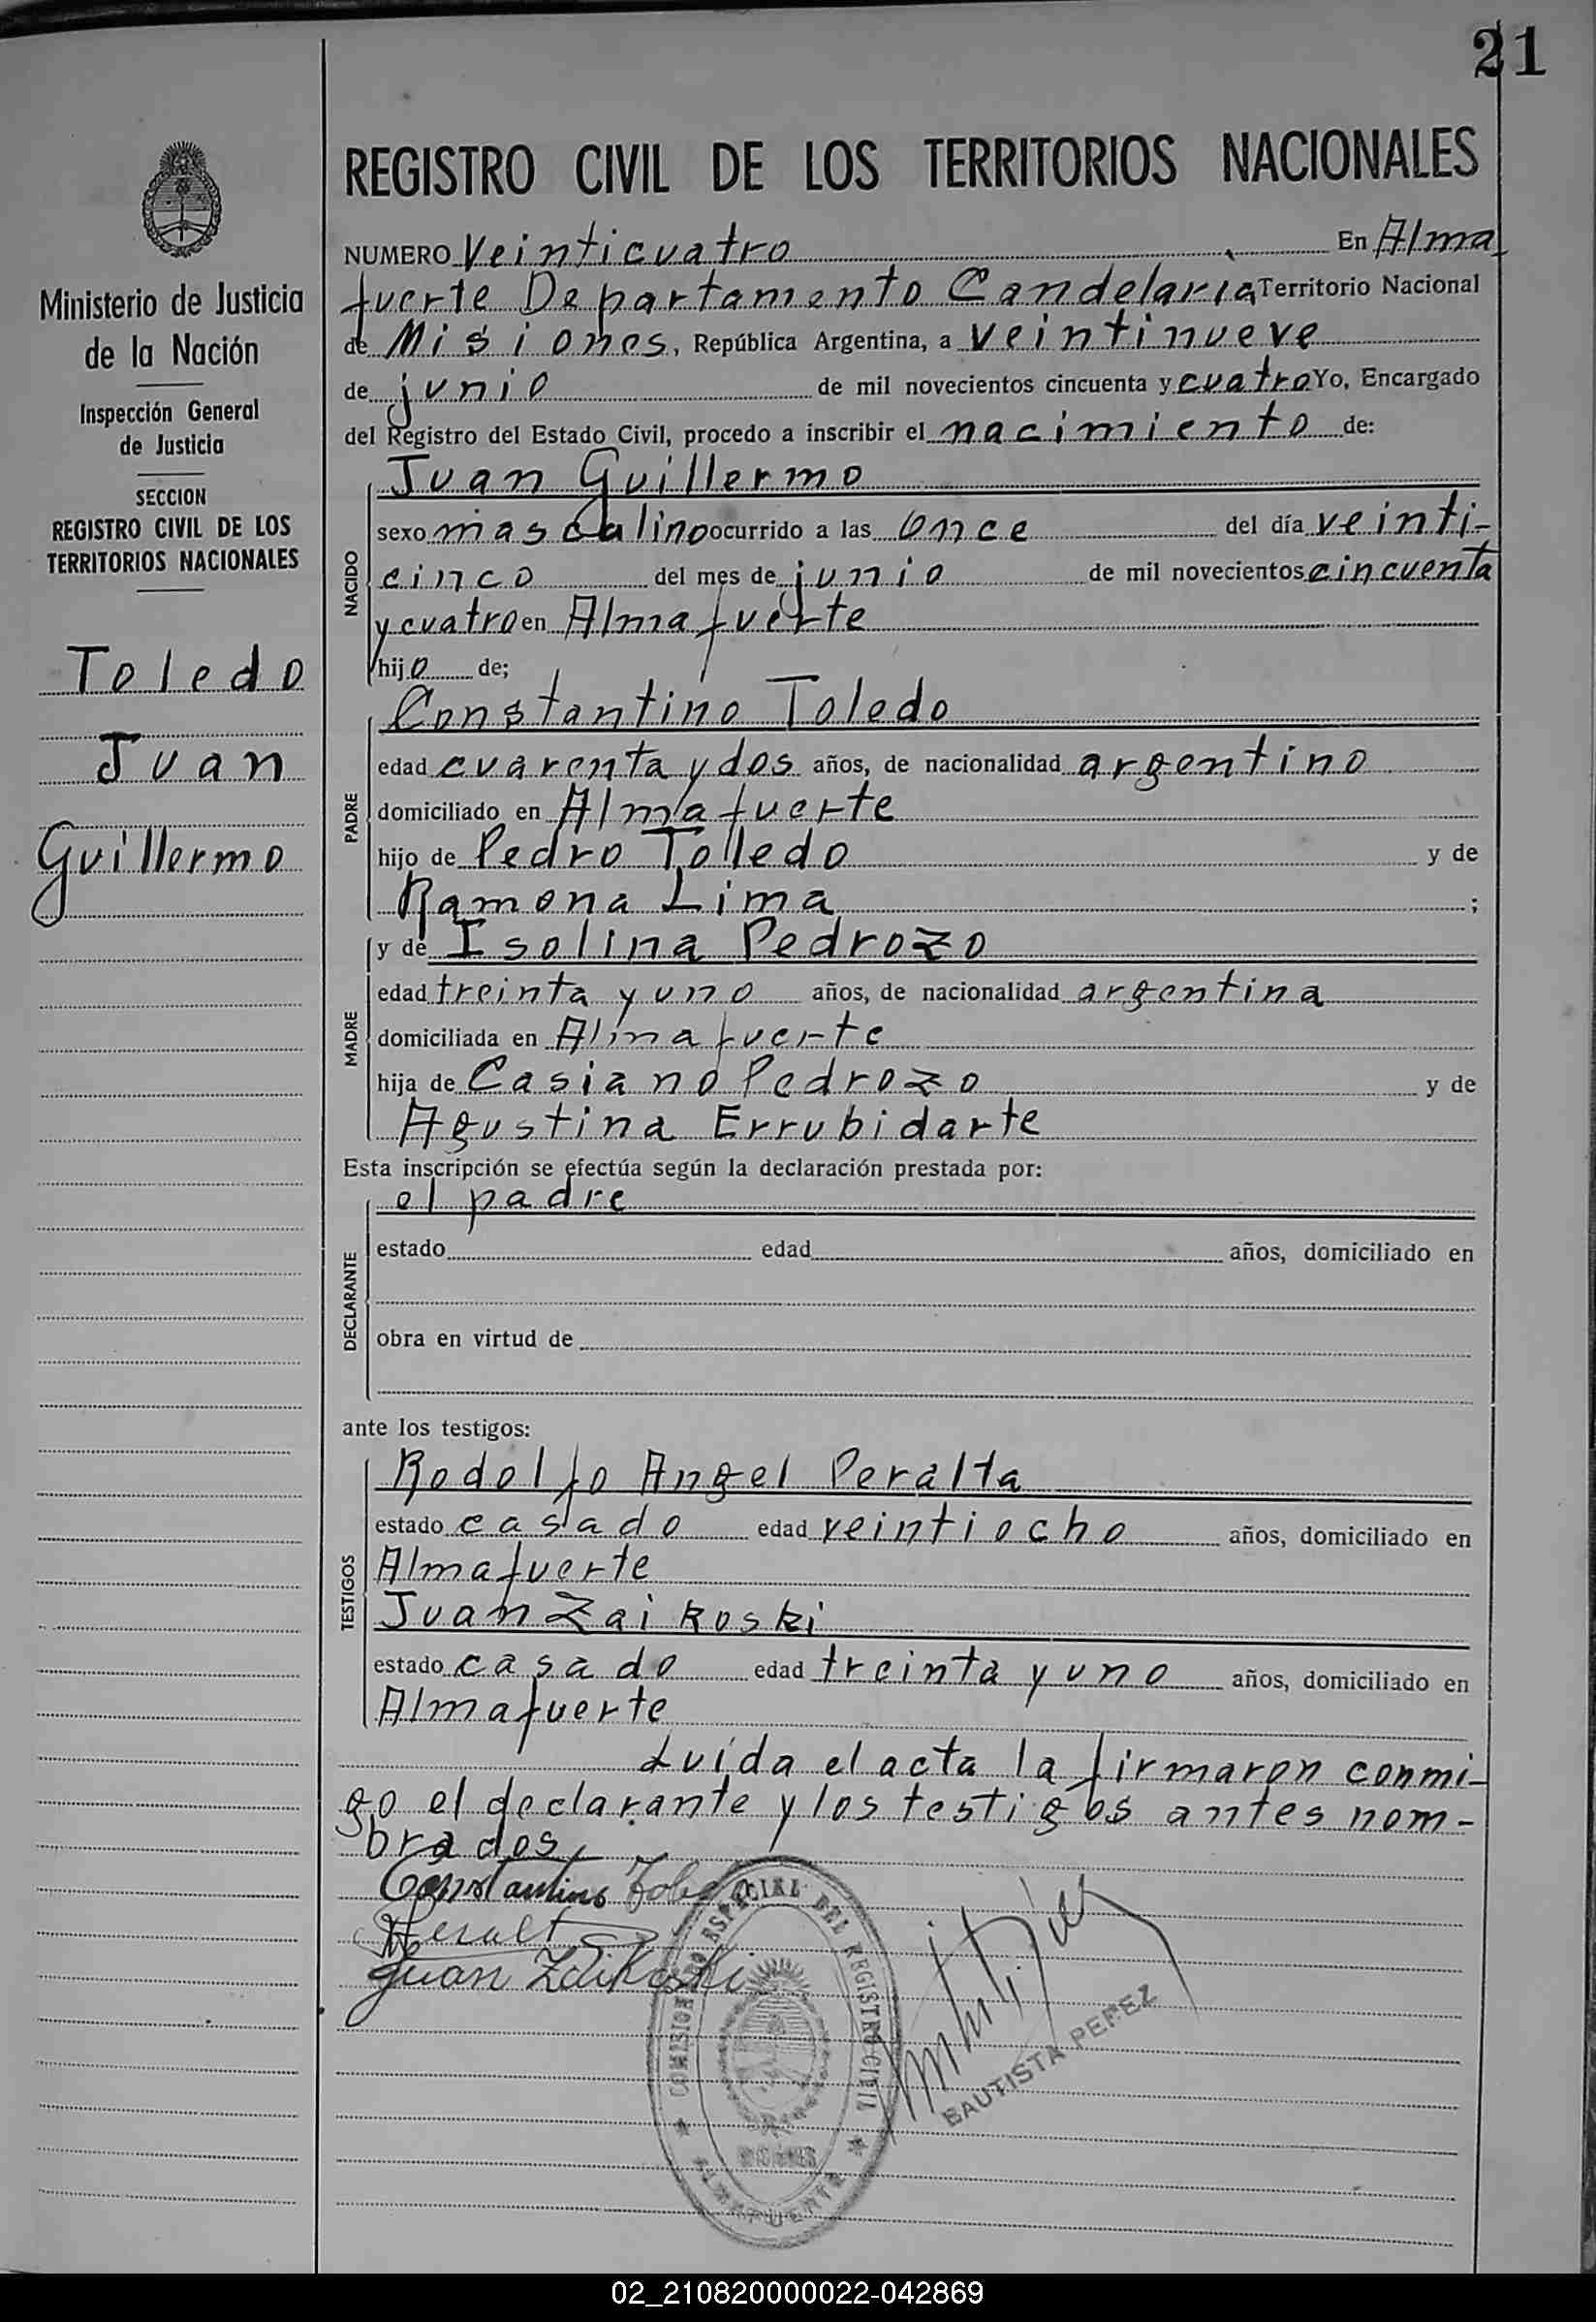 21
REGISTRO CIVIL DE LOS TERRITORIOS NACIONALES
Ministerio de Justicia
de la Nación
Inspección General
de Justicia
SECCION
REGISTRO CIVIL DE LOS
TERRITORIOS NACIONALES
Toledo
Juan
Guillermo
NUMERO Veinticuatro En Alma
fuerte Departamento Candelaria Territorio Nacional
de Misiones, República Argentina, a veintinueve
de junio de mil novecientos cincuenta y cuatro Yo, Encargado
del Registro del Estado Civil, procedo a inscribir el nacimiento de:
NACIDO
Juan Guillermo
sexo masculino ocurrido a las once del día veinti-
cinco del mes de junio de mil novecientos cincuenta
y cuatro en Almafuerte
hijo de;
PADRE
Constantino Toledo
edad cuarenta y dos años, de nacionalidad argentino
domiciliado en Almafuerte
hijo de Pedro Tolledo y de
Ramona Lima ;
MADRE
y de Isolina Pedrozo
edad treinta y uno años, de nacionalidad argentina
domiciliada en Almafuerte
hija de Casiano Pedrozo y de
Agustina Errubidarte
Esta inscripción se efectúa según la declaración prestada por:
DECLARANTE
el padre
estado edad años, domiciliado en
obra en virtud de
ante los testigos:
TESTIGOS
Rodolfo Angel Peralta
estado casado edad veintiocho años, domiciliado en
Almafuerte
Juan Zaikoski
estado casado edad treinta y uno años, domiciliado en
Almafuerte
Luida el acta la firmaron conmi-
go el declarante y los testigos antes nom-
brados,
Constantino Toledo
Juan Zaikoski
COMISIONADO ESPECIAL DEL REGISTRO CIVIL
MISIONES
ALMAFUERTE
BAUTISTA PEREZ
02_210820000022-042869